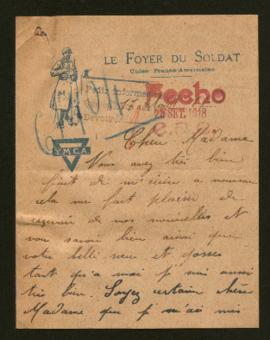 LE FOYER DU SOLDAT
Union Franco-Américaine
Fecho
SET. 1918
Y.M.C.A.
Chère Madame
Vous avez très bien
fait de m'écrire a nouveau
cela me fait plaisir de
recevoir de vos nouvelles et
vous savoir bien ainsi que
votre belle sœur et gosses
tant qu'a moi je suis aussi
très bien. Soyez certaine chère
Madame que je n'ai